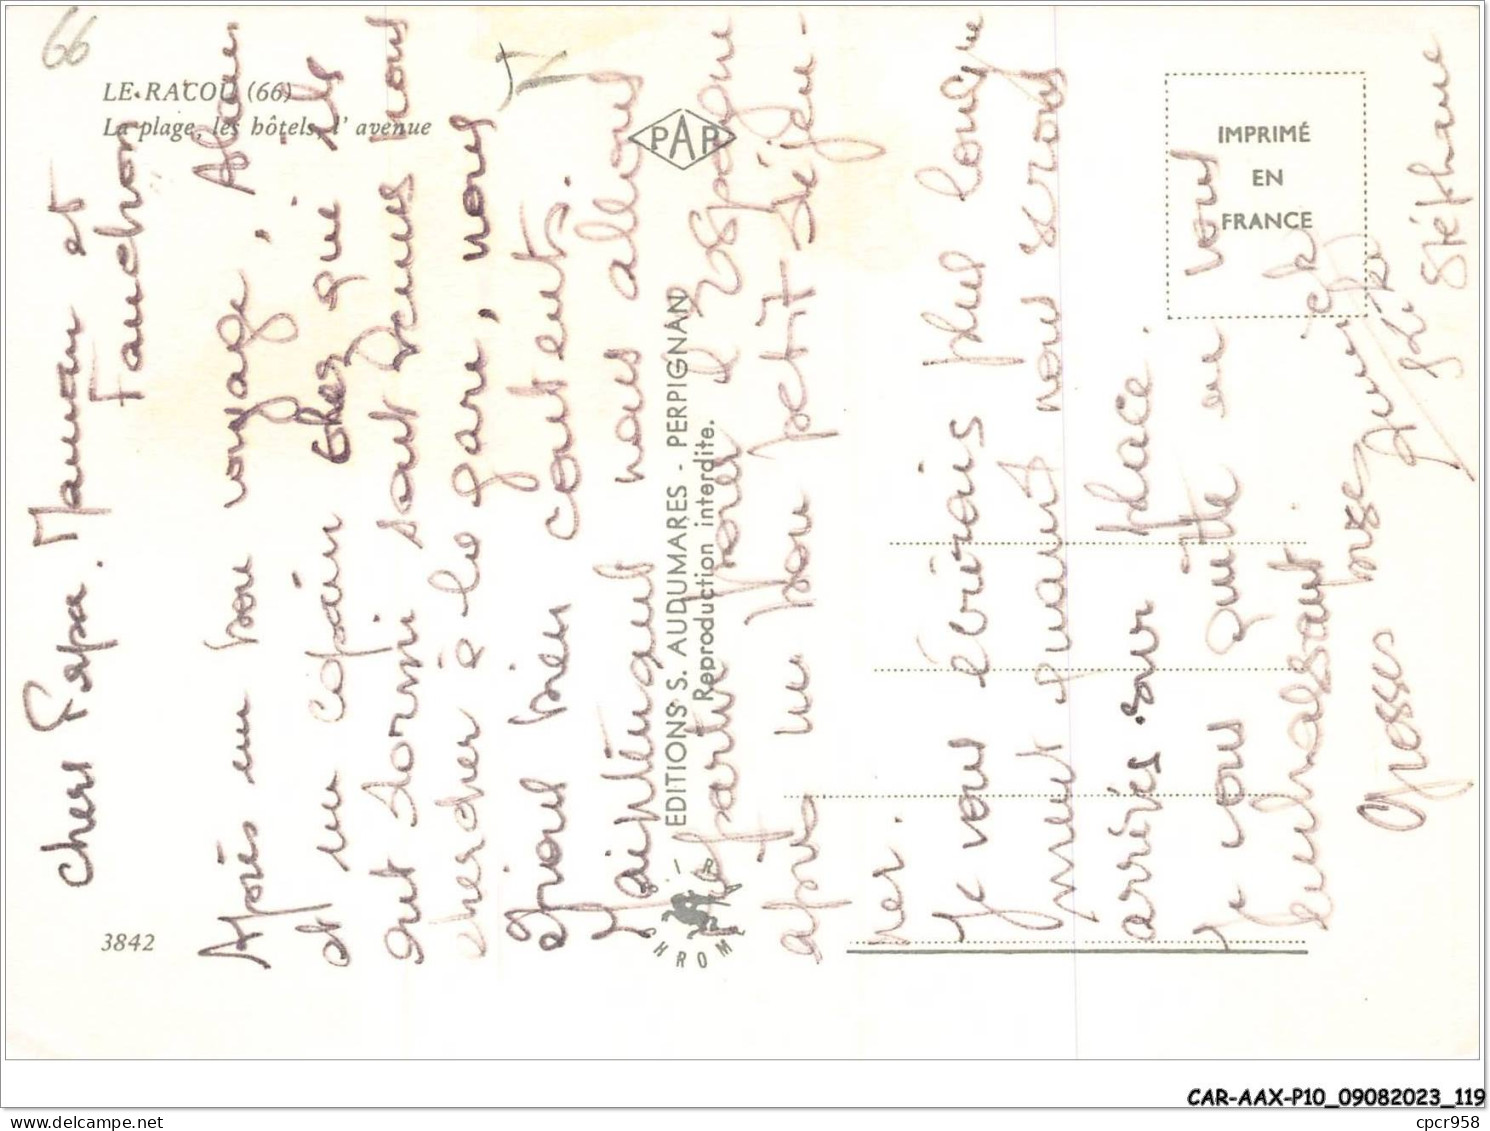 66
LE RACOU (66)
La plage, les hôtels, l'avenue
PAP
IMPRIMÉ
EN
FRANCE
EDITIONS S. AUDUMARES - PERPIGNAN
Reproduction interdite.
CHROM
3842
Chers Papa. Maman et
Fanchon
Après un bon voyage, Alain
et un copain chez qui ils
ont dormi sont venus nous
chercher à la gare, nous
étions bien contents.
Maintenant nous allons
partir pour l'Espagne
après un bon petit déjeu-
ner.
Je vous écrirais plus longue
ment quand nous serons
arrivés sur place.
Je vous quitte en vous
embrassant
Grosses bises
Stéphane
CAR-AAX-P10_09082023_119
cpcr958